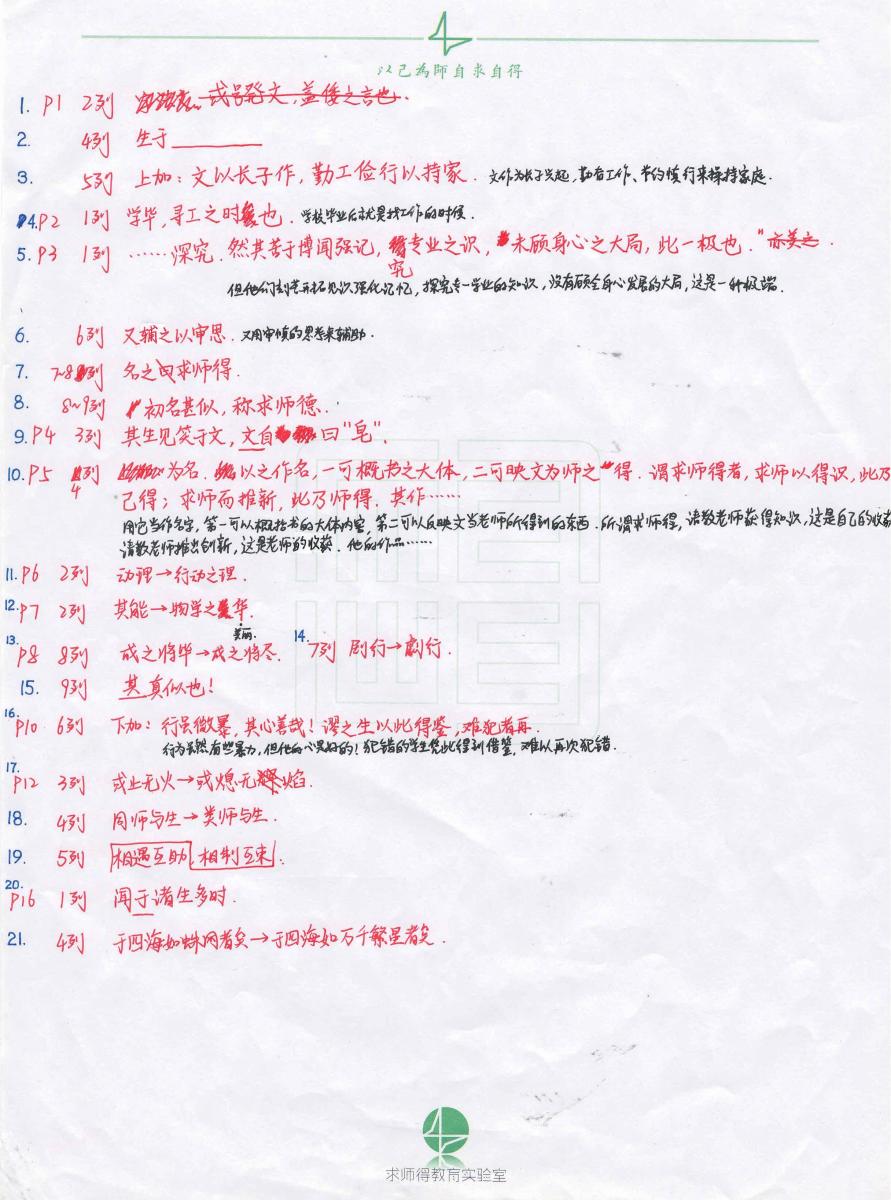 以己為師自求自得
1. P1 2列 或号発文，盖倭之言也.
2. 4列 生于
3. 5列 上加：文以长子作，勤工俭行以持家. 文作为长子兴起，勤奋工作、节约慎行来操持家庭.
4. P2 1列 学毕，寻工之时也. 学校毕业后就是找工作的时候.
5. P3 1列 ……深究. 然其苦于博闻强记，究专业之识，未顾身心之大局，此一极也."亦美之.
但他们刻苦开拓见识强化记忆，探究专一学业的知识，没有顾全身心发展的大局，这是一种极端.
6. 6列 又辅之以审思. 又用审慎的思考来辅助.
7. 7~8列 名之曰求师得.
8. 8~9列 初名甚似，称求师德.
9. P4 3列 其生见笑于文，文自曰"皂".
10. P5 4列 为名. 以之作名，一可概书之大体，二可映文为师之得. 谓求师得者，求师以得识，此乃
己得；求师而推新，此乃师得. 其作……
用它当作名字，第一可以概括书的大体内容，第二可以反映文当老师所得到的东西. 所谓求师得，请教老师获得知识，这是自己的收获
请教老师推出创新，这是老师的收获. 他的作品……
11. P6 2列 动理→行动之理.
12. P7 2列 其能→物学之华.
美丽.
13. P8 8列 成之将毕→成之将尽. 14. 7列 剧行→劇行.
15. 9列 其真似也！
16. P10 6列 下加：行虽微暴，其心善哉！谬之生以此得鉴，难犯者再.
行为虽然有些暴力，但他的心是好的！犯错的学生凭此得到借鉴，难以再次犯错.
17. P12 3列 或业无火→或熄无焰.
18. 4列 同师与生→类师与生.
19. 5列 相遇互助 相制互束.
20. P16 1列 闻于诸生多时.
21. 4列 于四海如蛛网者矣→于四海如万千繁星者矣.
求师得教育实验室